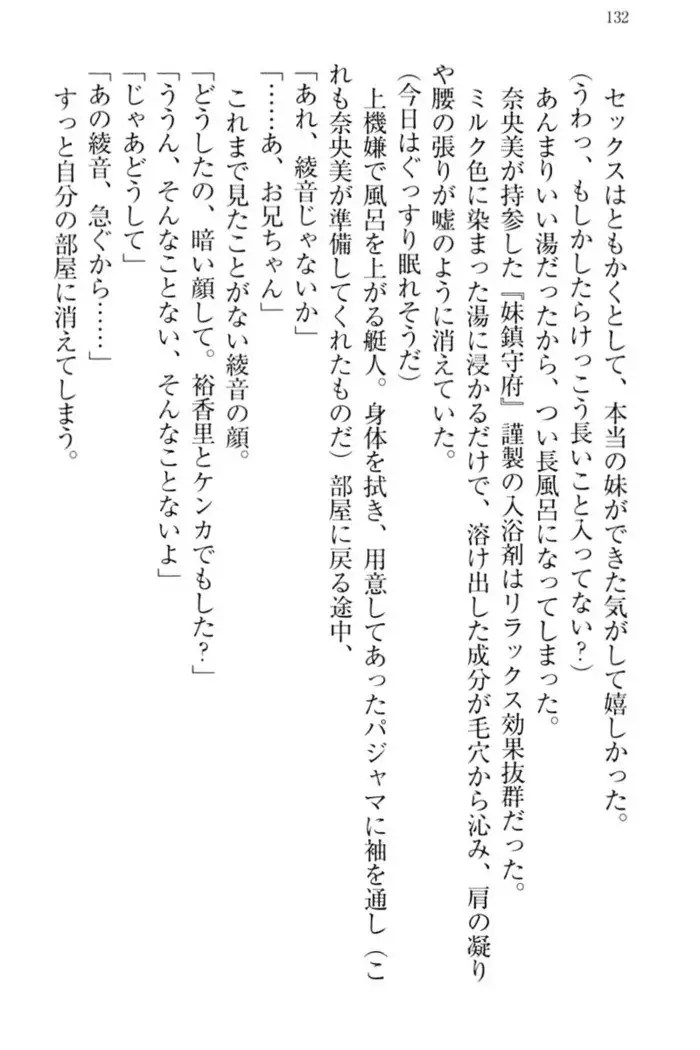 132
セックスはともかくとして、本当の妹ができた気がして嬉しかった。
(うわっ、もしかしたらけっこう長いこと入ってない?)
あんまりいい湯だったから、つい長風呂になってしまった。
奈央美が持参した『妹鎮守府』謹製の入浴剤はリラックス効果抜群だった。
ミルク色に染まった湯に浸かるだけで、溶け出した成分が毛穴から沁み、肩の凝り
や腰の張りが嘘のように消えていた。
(今日はぐっすり眠れそうだ)
上機嫌で風呂を上がる艇人。身体を拭き、用意してあったパジャマに袖を通し(こ
れも奈央美が準備してくれたものだ)部屋に戻る途中、
「あれ、綾音じゃないか」
「……あ、お兄ちゃん」
これまで見たことがない綾音の顔。
「どうしたの、暗い顔して。裕香里とケンカでもした?」
「ううん、そんなことない、そんなことないよ」
「じゃあどうして」
「あの綾音、急ぐから……」
すっと自分の部屋に消えてしまう。